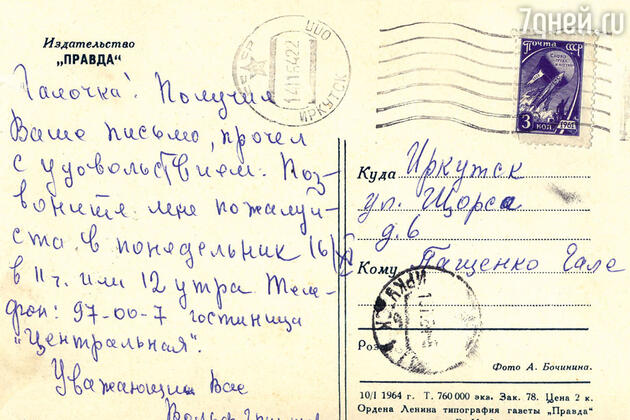 7дней.ru
Издательство
„ПРАВДА"
Галочка! Получил
Ваше письмо, прочел
с удовольствием. Поз-
воните мне пожалуй-
ста в понедельник 16/XI
в 11 ч. или 12 утра Теле-
фон: 97-00-7 гостиница
"Центральная".
Уважающий Вас
Вольф
ИРКУТСК
ПОЧТА СССР
3 КОП.
1961
Куда Иркутск
ул. Щорса
д. 6
Кому Пащенко Гале
Фото А. Бочинина.
10/I 1964 г. Т. 760 000 экз. Зак. 78. Цена 2 к.
Ордена Ленина типография газеты „Правда"